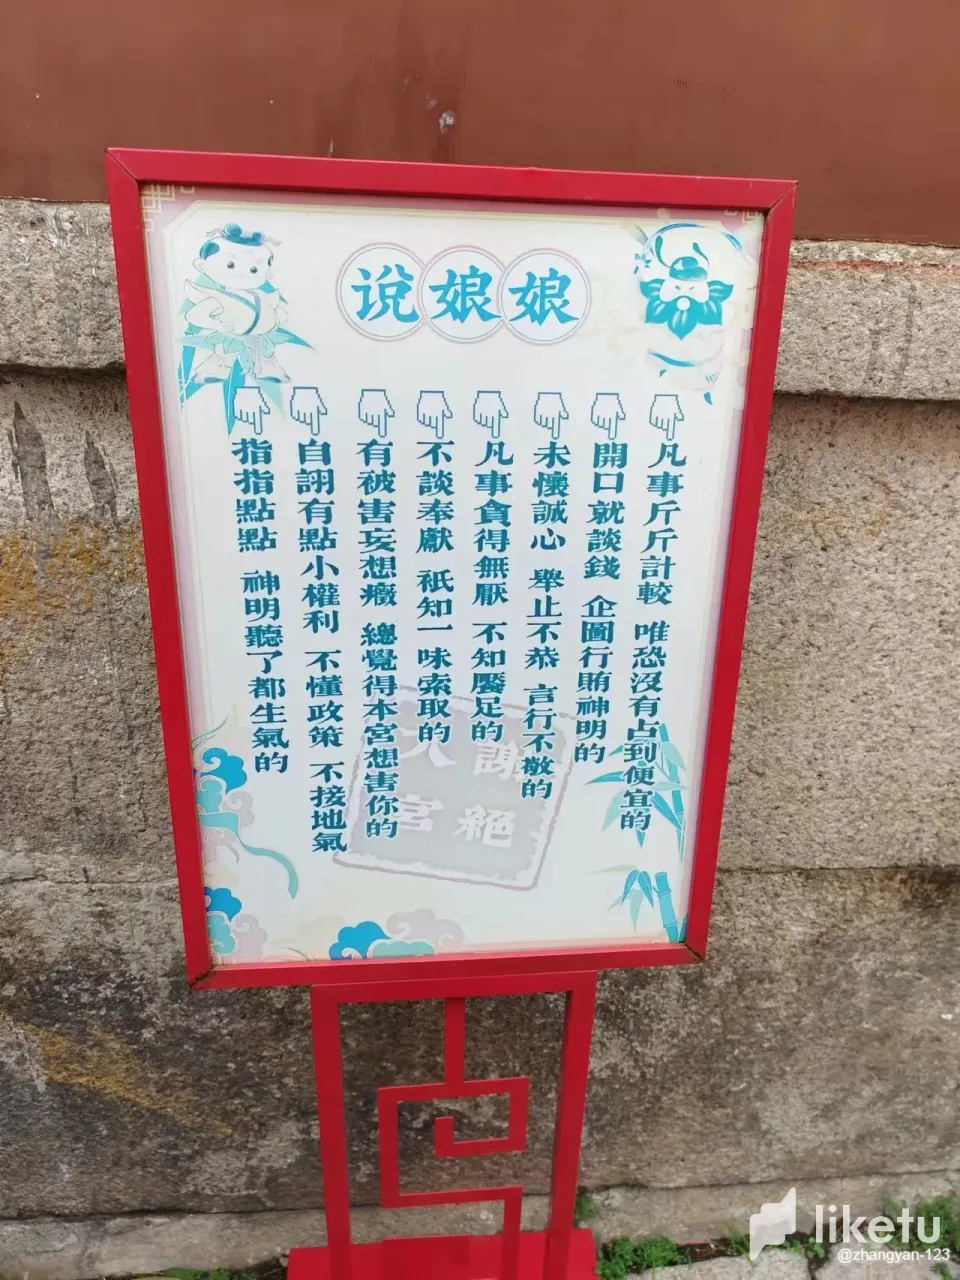 娘娘说
凡事斤斤計較 唯恐沒有占到便宜的
開口就談錢 企圖行賄神明的
未懷誠心 舉止不恭 言行不敬的
凡事貪得無厭 不知饜足的
不談奉獻 祇知一味索取的
有被害妄想癥 總覺得本宮想害你的
自詡有點小權利 不懂政策 不接地氣
指指點點 神明聽了都生氣的
謝絕
入宮
liketu
@zhangyan-123